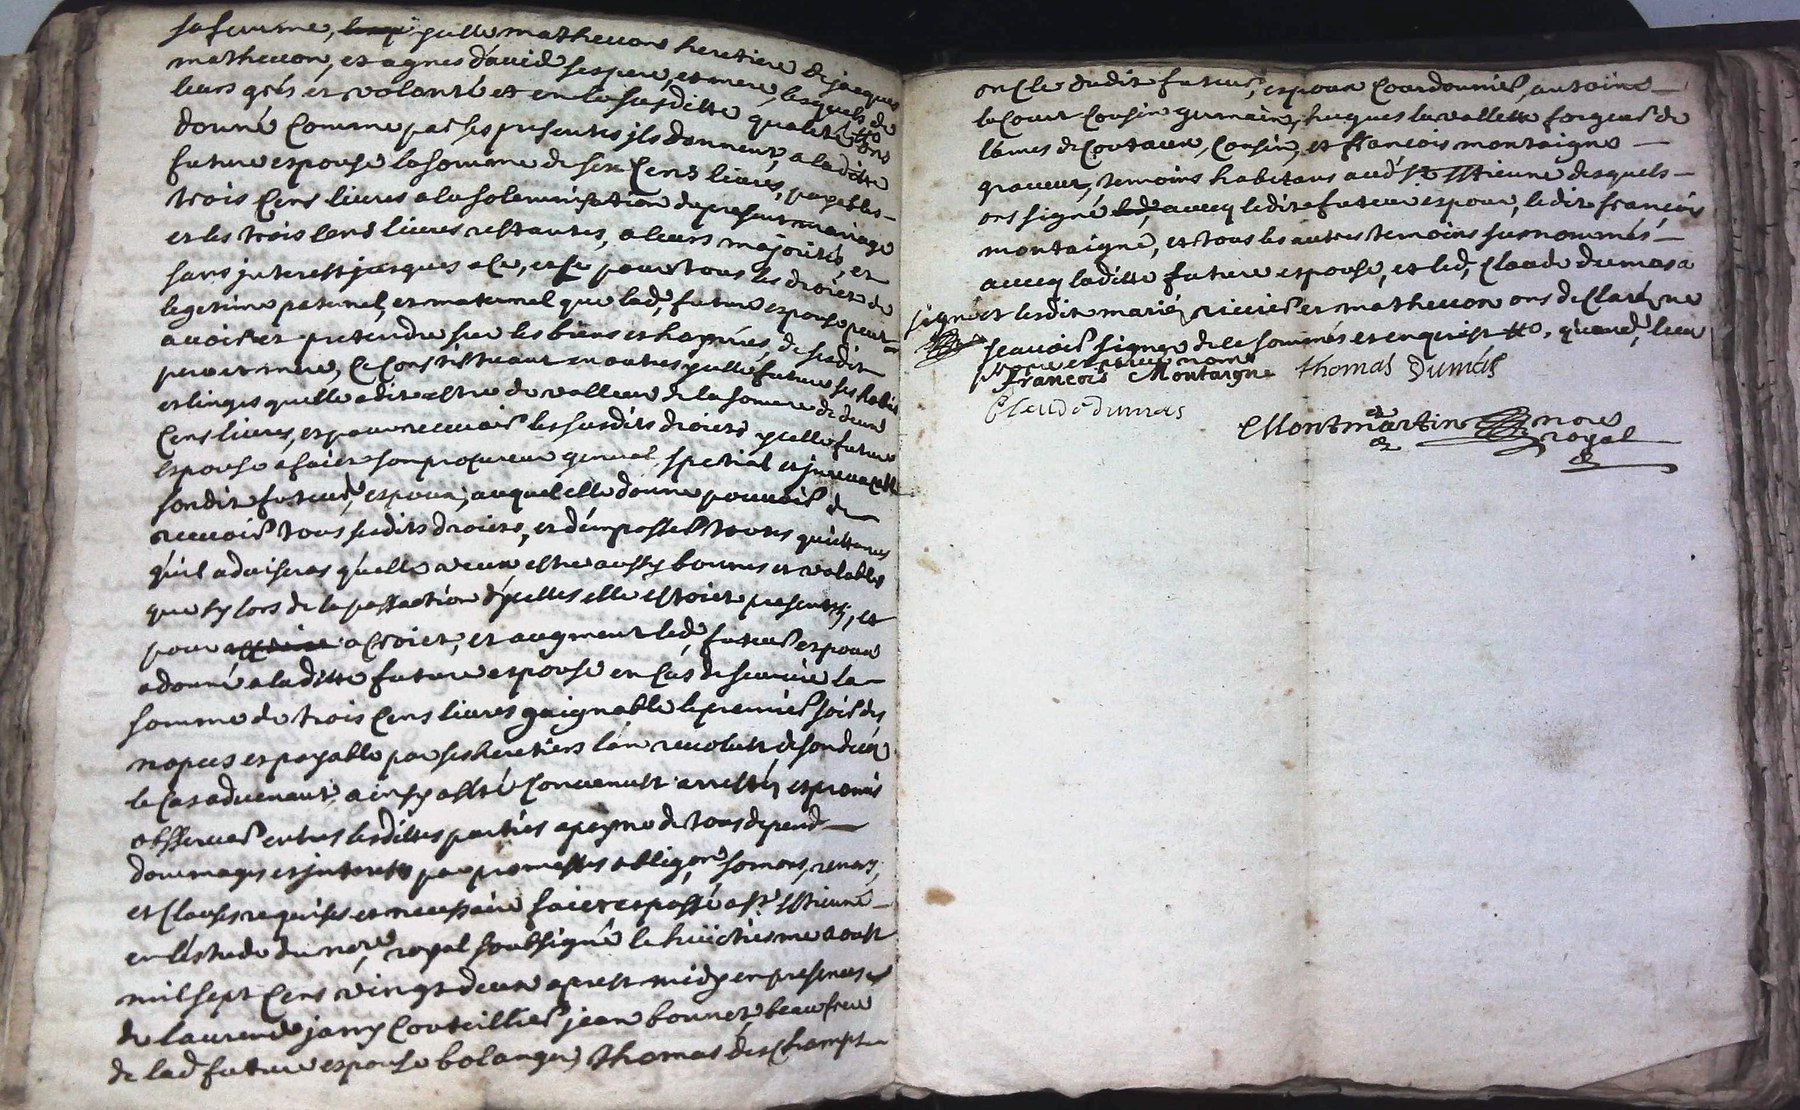 sa femme, ycelle mathevon heretiere de jacques
mathevon, et agnes david ses pere, et mere, lesquels de
leurs grés et volonté et en la susditte qualité ont
donné comme par ses presentes ils donnent, a laditte
future espouse la somme de six cens livres, payables
trois cens livres a la solemnisation du present mariage
et les trois cens livres restantes, a leurs majorités, et
sans interest jusques a ce, et ce pour tous les droict de
legitime paternel, et maternel que lad, future espouse peut
avoir et pretendre sur les biens et hoyries, de sesdit
pere et mere, ce constistuant en outres ycelle future ses habis
et linges quelle a dit estre de valleur de la somme de deux
cens livres, et pour recevoir les susdits droicts ycelle future
espouse a faict son procureur general, spetial et inrevocable
sondit futeur, espoux, auquel elle donne pouvoir de
recevoir tous sesdits droicts, et d'en passer toutes quittances
qu'il advisera qu'elle veut estre aussy bonnes et valables
que sy lors de la passaction d'ycelles elle estoict presente, et
pour acroict, et augment led, futeur espoux
a donné a laditte future espouse en cas de survie la
somme de trois cens livres gaignable le premier soir des
nopces et payable par ses heretiers l'an revolust de son deces
le cas advenant, ainsy a esté convenust arresté, et promis
observer entres lesdittes parties a peyne de tous depend
dommages et interests par promesses obligons, somons, renons,
et clauses requises et necessaire faict et passé a st Estienne
en l'estude du nore, royal soubsigné le huictiesme aoust
mil sept cens vingt deux aprest midy en presences
de laurent jarry couteillier jean bonnet, beau frere
de lad future espouse bolanger, thomas deschampt
oncle dudit futeur, espoux courdonnier, antoine
lacour cousin germain, hugues lavallette forgeur de
lames de coutaux, cousin, et francois montaigne
graveur, temoins habitans aud, st Estienne desquels
ons signé avecq ledit futeur espoux, ledit francois
montaigne, et tous les autres temoins susnommés
avecq laditte future espouse, et led, claude dumas a
signé et lesdit mariés riviere et mathevon ons declaré ne
scavoir signer de ce sommés et enquist
Francois Montaigne thomas Dumas
Claude dumas
Montmartin nore
royal